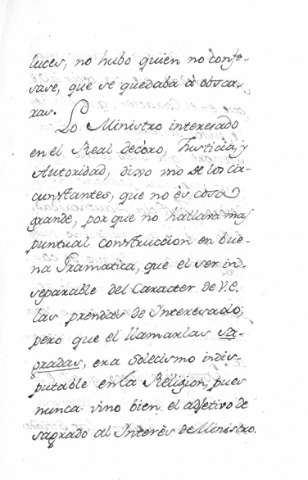 luces, no hubo quien no confe-
sase, que se quedaba à obscu-
ras.
Lo Ministro interesado
en el Real decoro, Justicia, y
Autoridad, dixo uno de los Cir-
cunstantes, que no es cosa
grande, por que no hallará mas
puntual construccion en bue-
na Gramatica, que el ser in-
separable del Caracter de V.E.
las prendas de Interesado;
pero que el llamarlas sa-
gradas, era Solecismo indis-
putable en la Religion, pues
nunca vino bien el adjetivo de
sagrado al Interès de Ministro.